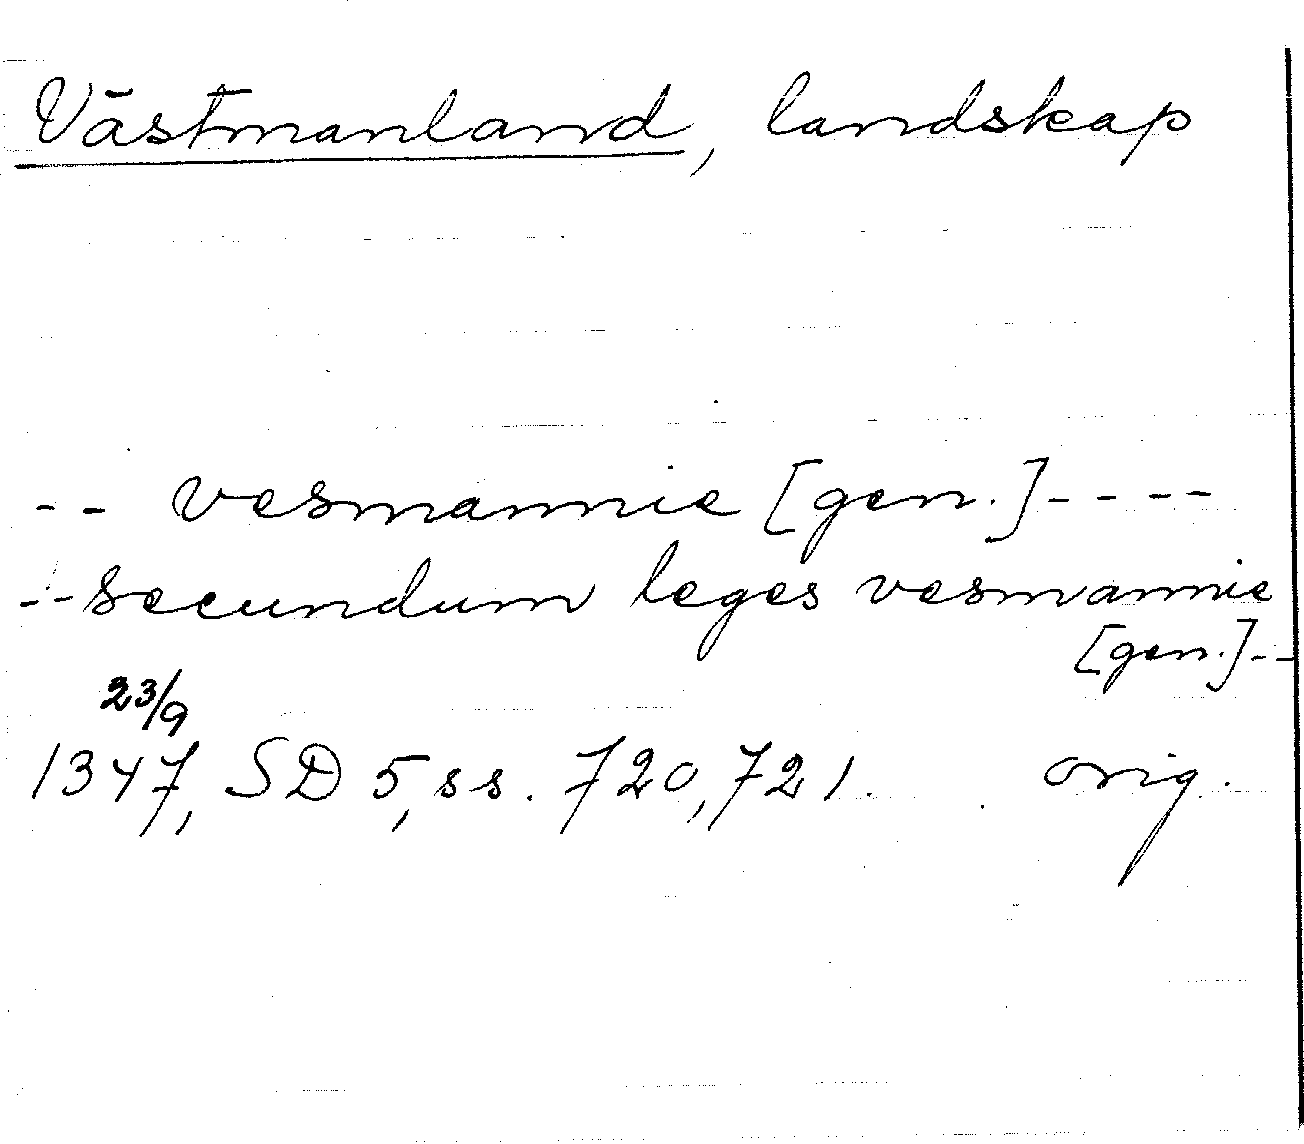 Västmanland, landskap
-- vesmannie [gen.]----
--secundum leges vesmannie
[gen.]--
23/9
1347, SD 5, ss. 720, 721. orig.